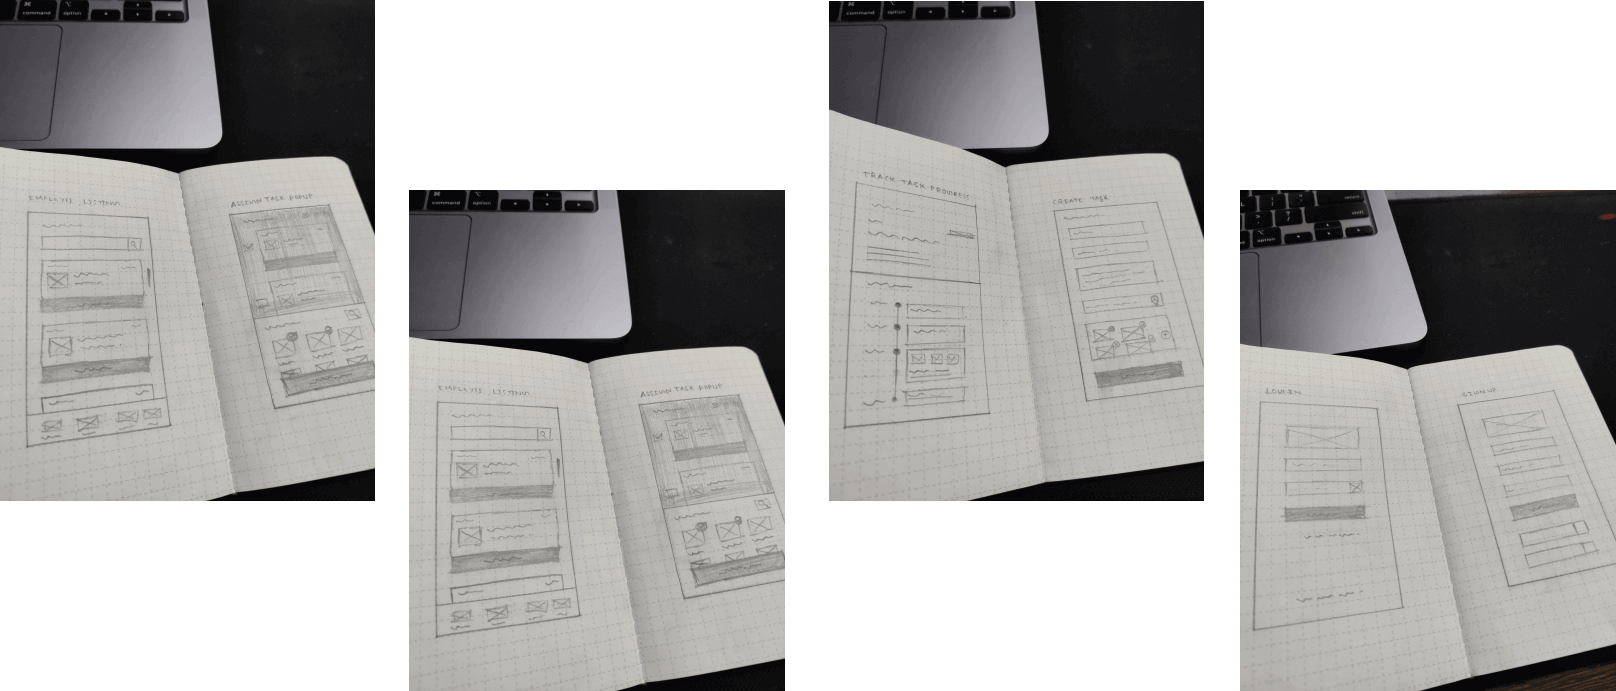 command
option
EMPLOYEE LISTING
ASSIGN TASK POPUP
command
option
EMPLOYEE LISTING
ASSIGN TASK POPUP
command
option
TRACK TASK PROGRESS
CREATE TASK
return
shift
option
LOGIN
SIGN UP